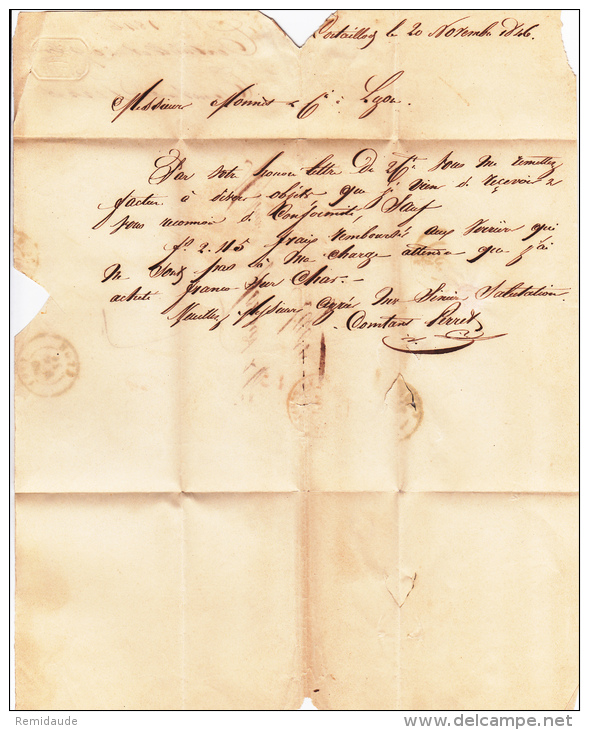 Cortaillod le 20 Novembre 1846.
Messieurs Monnier & Cie à Lyon.
Par votre honoré lettre du 7ct vous me remettez
facture à divers objets que j'ai vien de reçevoir &
vous reconnois de Conformité, Sauf
fs 2.45 frais remboursés aux Verrier qui
ne sont pas à ma charge attendu que j'ai
acheté franco sur Char.-
Veuillez Messieurs agréer mes Sincère Salutation.
Constant Perret
Remidaude
www.delcampe.net